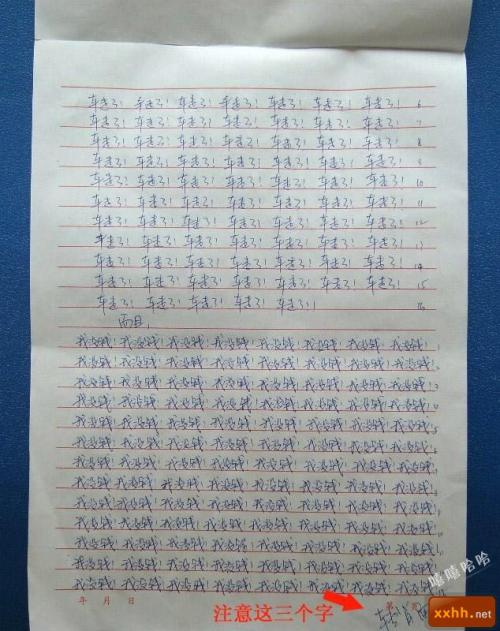 车走了! 车走了! 车走了! 车走了! 车走了! 车走了! 车走了! 6
车走了! 车走了! 车走了! 车走了! 车走了! 车走了! 车走了! 7
车走了! 车走了! 车走了! 车走了! 车走了! 车走了! 车走了! 8
车走了! 车走了! 车走了! 车走了! 车走了! 车走了! 车走了! 9
车走了! 车走了! 车走了! 车走了! 车走了! 车走了! 车走了! 10
车走了! 车走了! 车走了! 车走了! 车走了! 车走了! 车走了! 11
车走了! 车走了! 车走了! 车走了! 车走了! 车走了! 车走了! 12
车走了! 车走了! 车走了! 车走了! 车走了! 车走了! 车走了! 13
车走了! 车走了! 车走了! 车走了! 车走了! 车走了! 车走了! 14
车走了! 车走了! 车走了! 车走了! 车走了! 车走了! 车走了! 15
车走了! 车走了! 车走了! 车走了! 车走了!! 16
而且,
我没钱! 我没钱! 我没钱! 我没钱! 我没钱! 我没钱! 我没钱! 我没钱!
我没钱! 我没钱! 我没钱! 我没钱! 我没钱! 我没钱! 我没钱! 我没钱!
我没钱! 我没钱! 我没钱! 我没钱! 我没钱! 我没钱! 我没钱! 我没钱!
我没钱! 我没钱! 我没钱! 我没钱! 我没钱! 我没钱! 我没钱! 我没钱!
我没钱! 我没钱! 我没钱! 我没钱! 我没钱! 我没钱! 我没钱! 我没钱!
我没钱! 我没钱! 我没钱! 我没钱! 我没钱! 我没钱! 我没钱! 我没钱!
我没钱! 我没钱! 我没钱! 我没钱! 我没钱! 我没钱! 我没钱! 我没钱!
我没钱! 我没钱! 我没钱! 我没钱! 我没钱! 我没钱! 我没钱! 我没钱!
我没钱! 我没钱! 我没钱! 我没钱! 我没钱! 我没钱! 我没钱! 我没钱!
我没钱! 我没钱! 我没钱! 我没钱! 我没钱! 我没钱! 我没钱! 我没钱!
我没钱! 我没钱! 我没钱! 我没钱! 我没钱! 我没钱! 我没钱! 我没钱!
我没钱! 我没钱! 我没钱! 我没钱! 我没钱! 我没钱! 我没钱! 我没钱!
我没钱! 我没钱! 我没钱! 我没钱! 我没钱! 我没钱! 我没钱! 我没钱!
嘻嘻哈哈
年 月 日
注意这三个字
xxhh.net